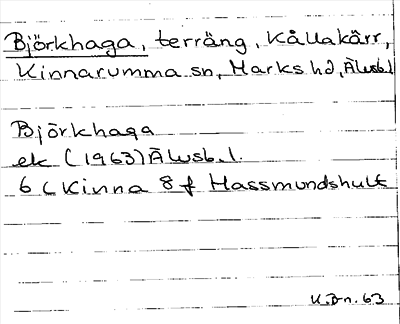 Björkhaga, terräng, Kållakärr,
Kinnarumma sn, Marks hd, Älvsb.l
Björkhaga
ek (1963) Älvsb.l.
6 C Kinna 8 f Hassmundshult
U.Dn. 63